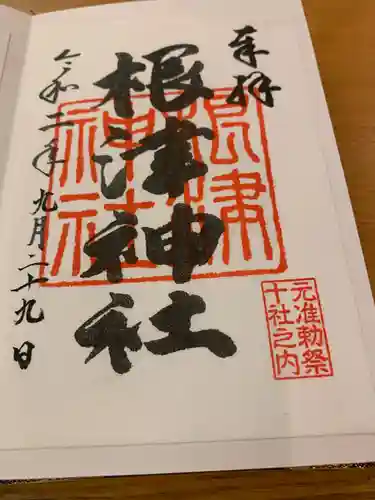 奉拝
根津神社
根津神社
令和二年九月二十九日
元准勅祭
十社之内